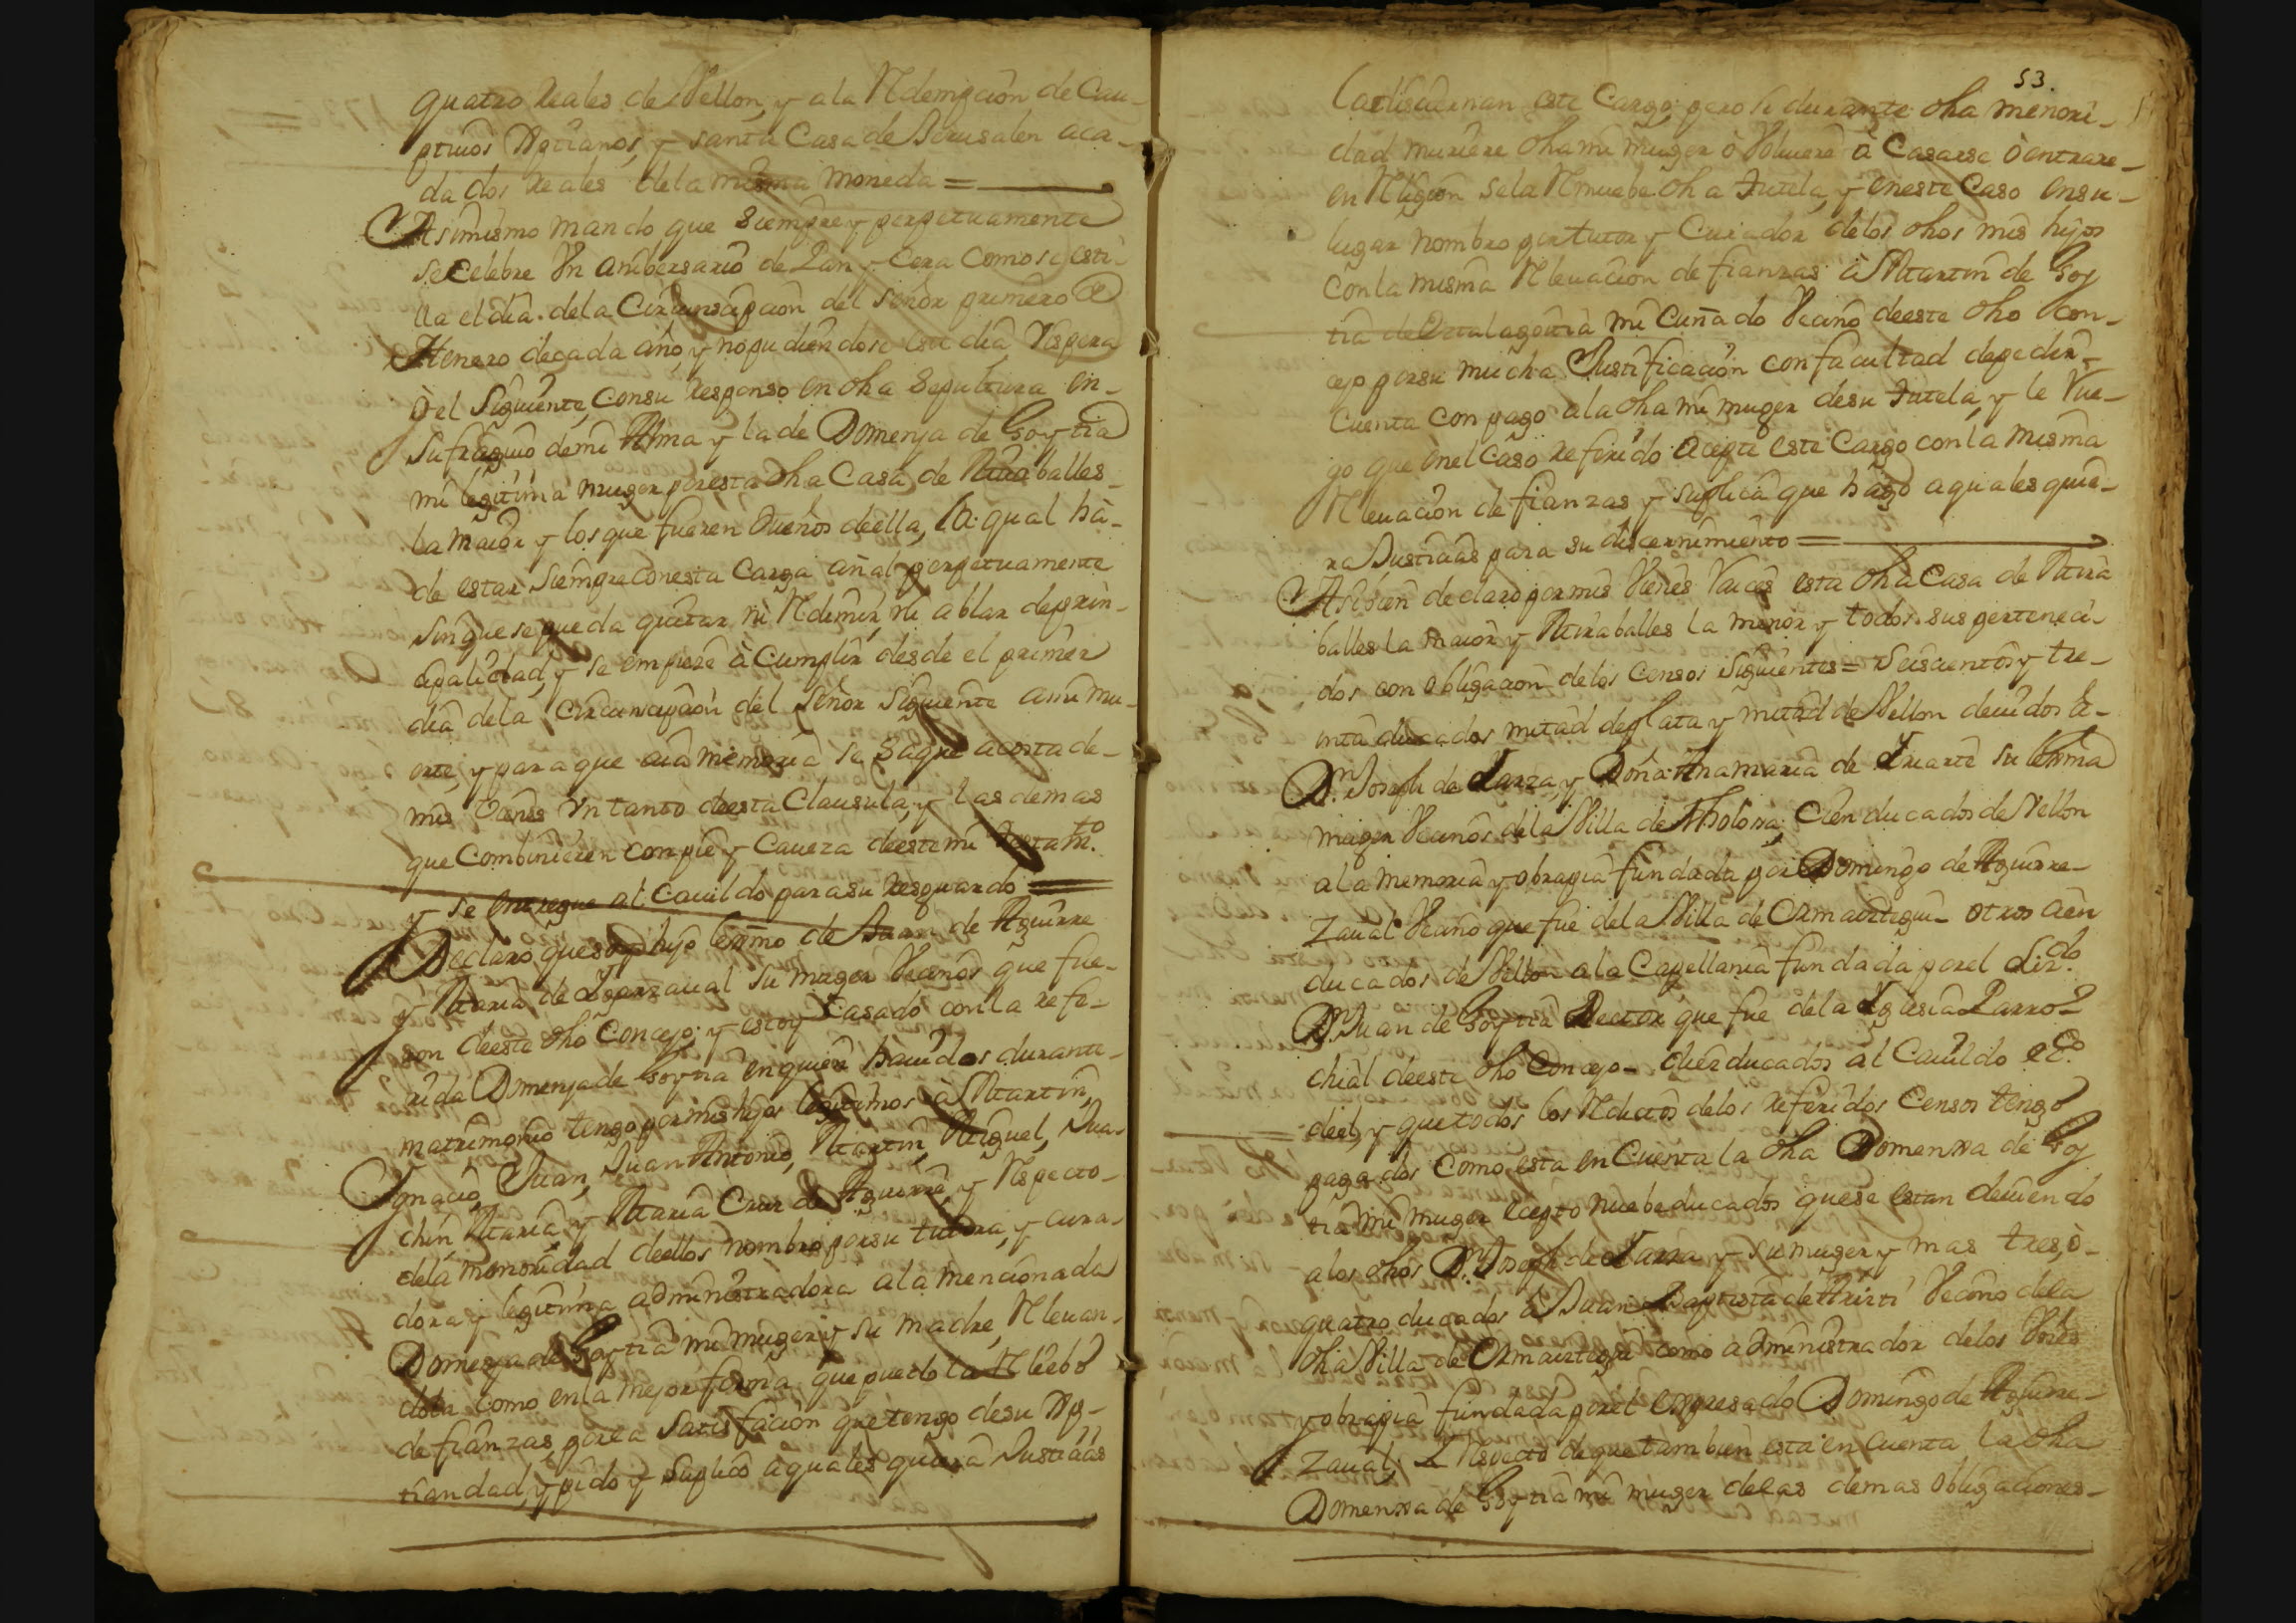 quatro Reales de Vellon, y a la Redempcion de Cau-
ptiuos Xptianos, y santa Casa de Jerusalen aca-
da dos Reales de la misma moneda =
Asimismo mando que siempre y perpetuamente
se celebre Un anibersario de Pan y Cera como se esti-
lla el dia de la Circunscipcion del señor primero de
Henero de cada año, y no pudiendose ese dia Vispera
ò el siguiente, con su responso en dha sepultura en-
sufraguio de mi Alma y la de Domenja de Goytia
mi legitima muger por esta dha Casa de Miraballes-
la maior y los que fueren Dueños de ella, la qual hà-
de estar siempre con esta Carga añal y perpetuamente
sin que se pueda quitar ni Redimir, ni ablar de prin-
cipalidad, y se empieze à Cumplir desde el primer
dia de la Circunsicpaon del Señor siguiente a mi mu-
erte, y para que aia memoria se saque a costa de-
mis Vienes Un tanto de esta Clausula, y las demas
que Combinieren con pie y Caueza de este mi testamto.
y se entregue al Cauildo para su resguardo =
Declaro que soy hijo lexmo de Juan de Aguirre
y Maria de Izparzaual su muger Vecinos que fue-
ron de este dho Concejo; y estoy Casado con la refe-
rida Domenja de Goytia en quien hauidos durante-
matrimonio tengo por mis hijos legitimos à Martin
Ygnacio, Juan, Juan Antonio, Martin, Miguel, Jua-
chin Maria y Maria Cruz de Aguirre, y Respecto-
de la menoridad de ellos nombro por su tutora, y cura-
dora y legitima administradora a la mencionada
Domenja de Goytia mi muger y su madre, Releuan-
dola como en la mejor forma que puedo la Reliebo
de fianzas, por la satisfacion que tengo de su Xp-
tiandad, y pido y suplico a quales quiera Justicias
53.
la disciernan este Cargo; pero si durante dha menori-
dad muriere dha mi muger ò Voluiere à Casarse ò entrare-
en Religion se la Remuebe dha Tutela, y en este Caso en su-
lugar nombro por tutor y Curador de los dhos mis hijos
con la misma Releuacion de fianzas à Martin de Goy
tia de Ertalagoitia mi Cuñado Vecino de este dho Con-
cejo por su mucha Justificacion con facultad de pedir-
Cuenta con pago a la dha mi muger de su tutela, y le Rue-
go que en el Caso referido acepte este Cargo con la misma
Releuacion de fianzas y suplica que hago a quales quie-
ra Justicias para su discernimiento =
Asi bien declaro por mis Vienes Raices esta dha Casa de Mira
balles la maior y Miraballes la menor y todos sus perteneci-
dos con obligacion de los Censos siguientes = Seiscientos y tre-
inta ducados mitad de plata y mitad de Vellon deuidos à-
Dn. Joseph de Yarza, y Doña Anamaria de Yriarte su lexma
muger Vecinos de la Villa de Tholosa; Cien ducados de Vellon
a la memoria y obrapia fundada por Domingo de Aguirre-
Zaual Vecino que fue de la Villa de Ormaiztegui - otros cien
ducados de Vellon a la Capellania fundada por el Lizdo.
Dn. Juan de Goytia Rector que fue de la Yglesia Parro-
chial de este dho Concejo - diez ducados al Cauildo eco.
de el, y que todos los Reditos de los referidos Censos tengo
pagados como esta en Cuenta la dha Domenxa de Goy
tia mi muger ecepto nuebe ducados que se estan deuiendo
a los dhos Dn. Joseph de Yarza y su muger y mas tres, ò-
quatro ducados à Juan Baptista de Aristi Vecino de la
dha Villa de Ormaiztegui como administrador de los Vienes
y obrapia fundada por el expresado Domingo de Aguirre-
Zaual; Y Respecto de que tambien esta en Cuenta la dha
Domenxa de Goytia mi muger de las demas obligaciones-